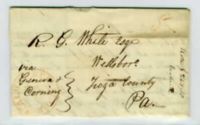 R. G. White Esq
Wellsboro
Tioga County
Pa
via
Geneva &
Corning